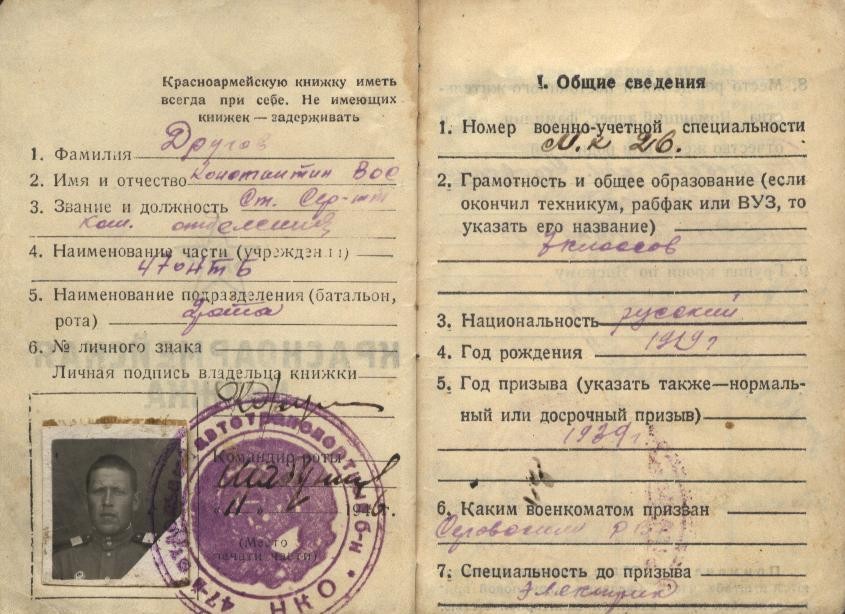 Красноармейскую книжку иметь
всегда при себе. Не имеющих
книжек — задерживать
1. Фамилия Другов
2. Имя и отчество Константин Вас
3. Звание и должность Ст. Сер-нт
ком. отделения
4. Наименование части (учреждения)
47 ОАТБ
5. Наименование подразделения (батальон,
рота) рота
6. № личного знака
Личная подпись владельца книжки
Командир роты
"11" 194
(Место
печати части)
автотранспортный б-н
47-й
НКО
I. Общие сведения
1. Номер военно-учетной специальности
26.
2. Грамотность и общее образование (если
окончил техникум, рабфак или ВУЗ, то
указать его название)
7 классов
3. Национальность русский
4. Год рождения 1919 г
5. Год призыва (указать также—нормаль-
ный или досрочный призыв)
1939 г.
6. Каким военкоматом призван
7. Специальность до призыва
Электрик